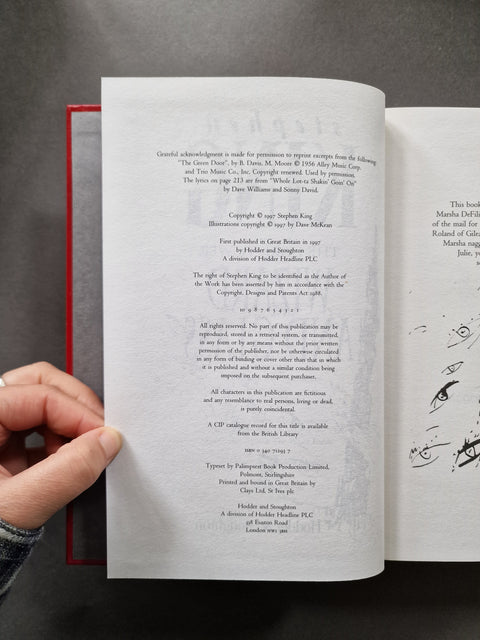 Grateful acknowledgment is made for permission to reprint excerpts from the following:
"The Green Door", by B. Davis, M. Moore © 1956 Alley Music Corp.
and Trio Music Co., Inc. Copyright renewed. Used by permission.
The lyrics on page 213 are from "Whole Lot-ta Shakin' Goin' On"
by Dave Williams and Sonny David.
Copyright © 1997 Stephen King
Illustrations copyright © 1997 by Dave McKean
First published in Great Britain in 1997
by Hodder and Stoughton
A division of Hodder Headline PLC
The right of Stephen King to be identified as the Author of
the Work has been asserted by him in accordance with the
Copyright, Designs and Patents Act 1988.
10 9 8 7 6 5 4 3 2 1
All rights reserved. No part of this publication may be
reproduced, stored in a retrieval system, or transmitted,
in any form or by any means without the prior written
permission of the publisher, nor be otherwise circulated
in any form of binding or cover other than that in which
it is published and without a similar condition being
imposed on the subsequent purchaser.
All characters in this publication are fictitious
and any resemblance to real persons, living or dead,
is purely coincidental.
A CIP catalogue record for this title is available
from the British Library
ISBN 0 340 71293 7
Typeset by Palimpsest Book Production Limited,
Polmont, Stirlingshire
Printed and bound in Great Britain by
Clays Ltd, St Ives plc
Hodder and Stoughton
A division of Hodder Headline PLC
338 Euston Road
London NW1 3BH
This book
Marsha DeFili
of the mail for
Roland of Gilea
Marsha nagg
Julie, yo